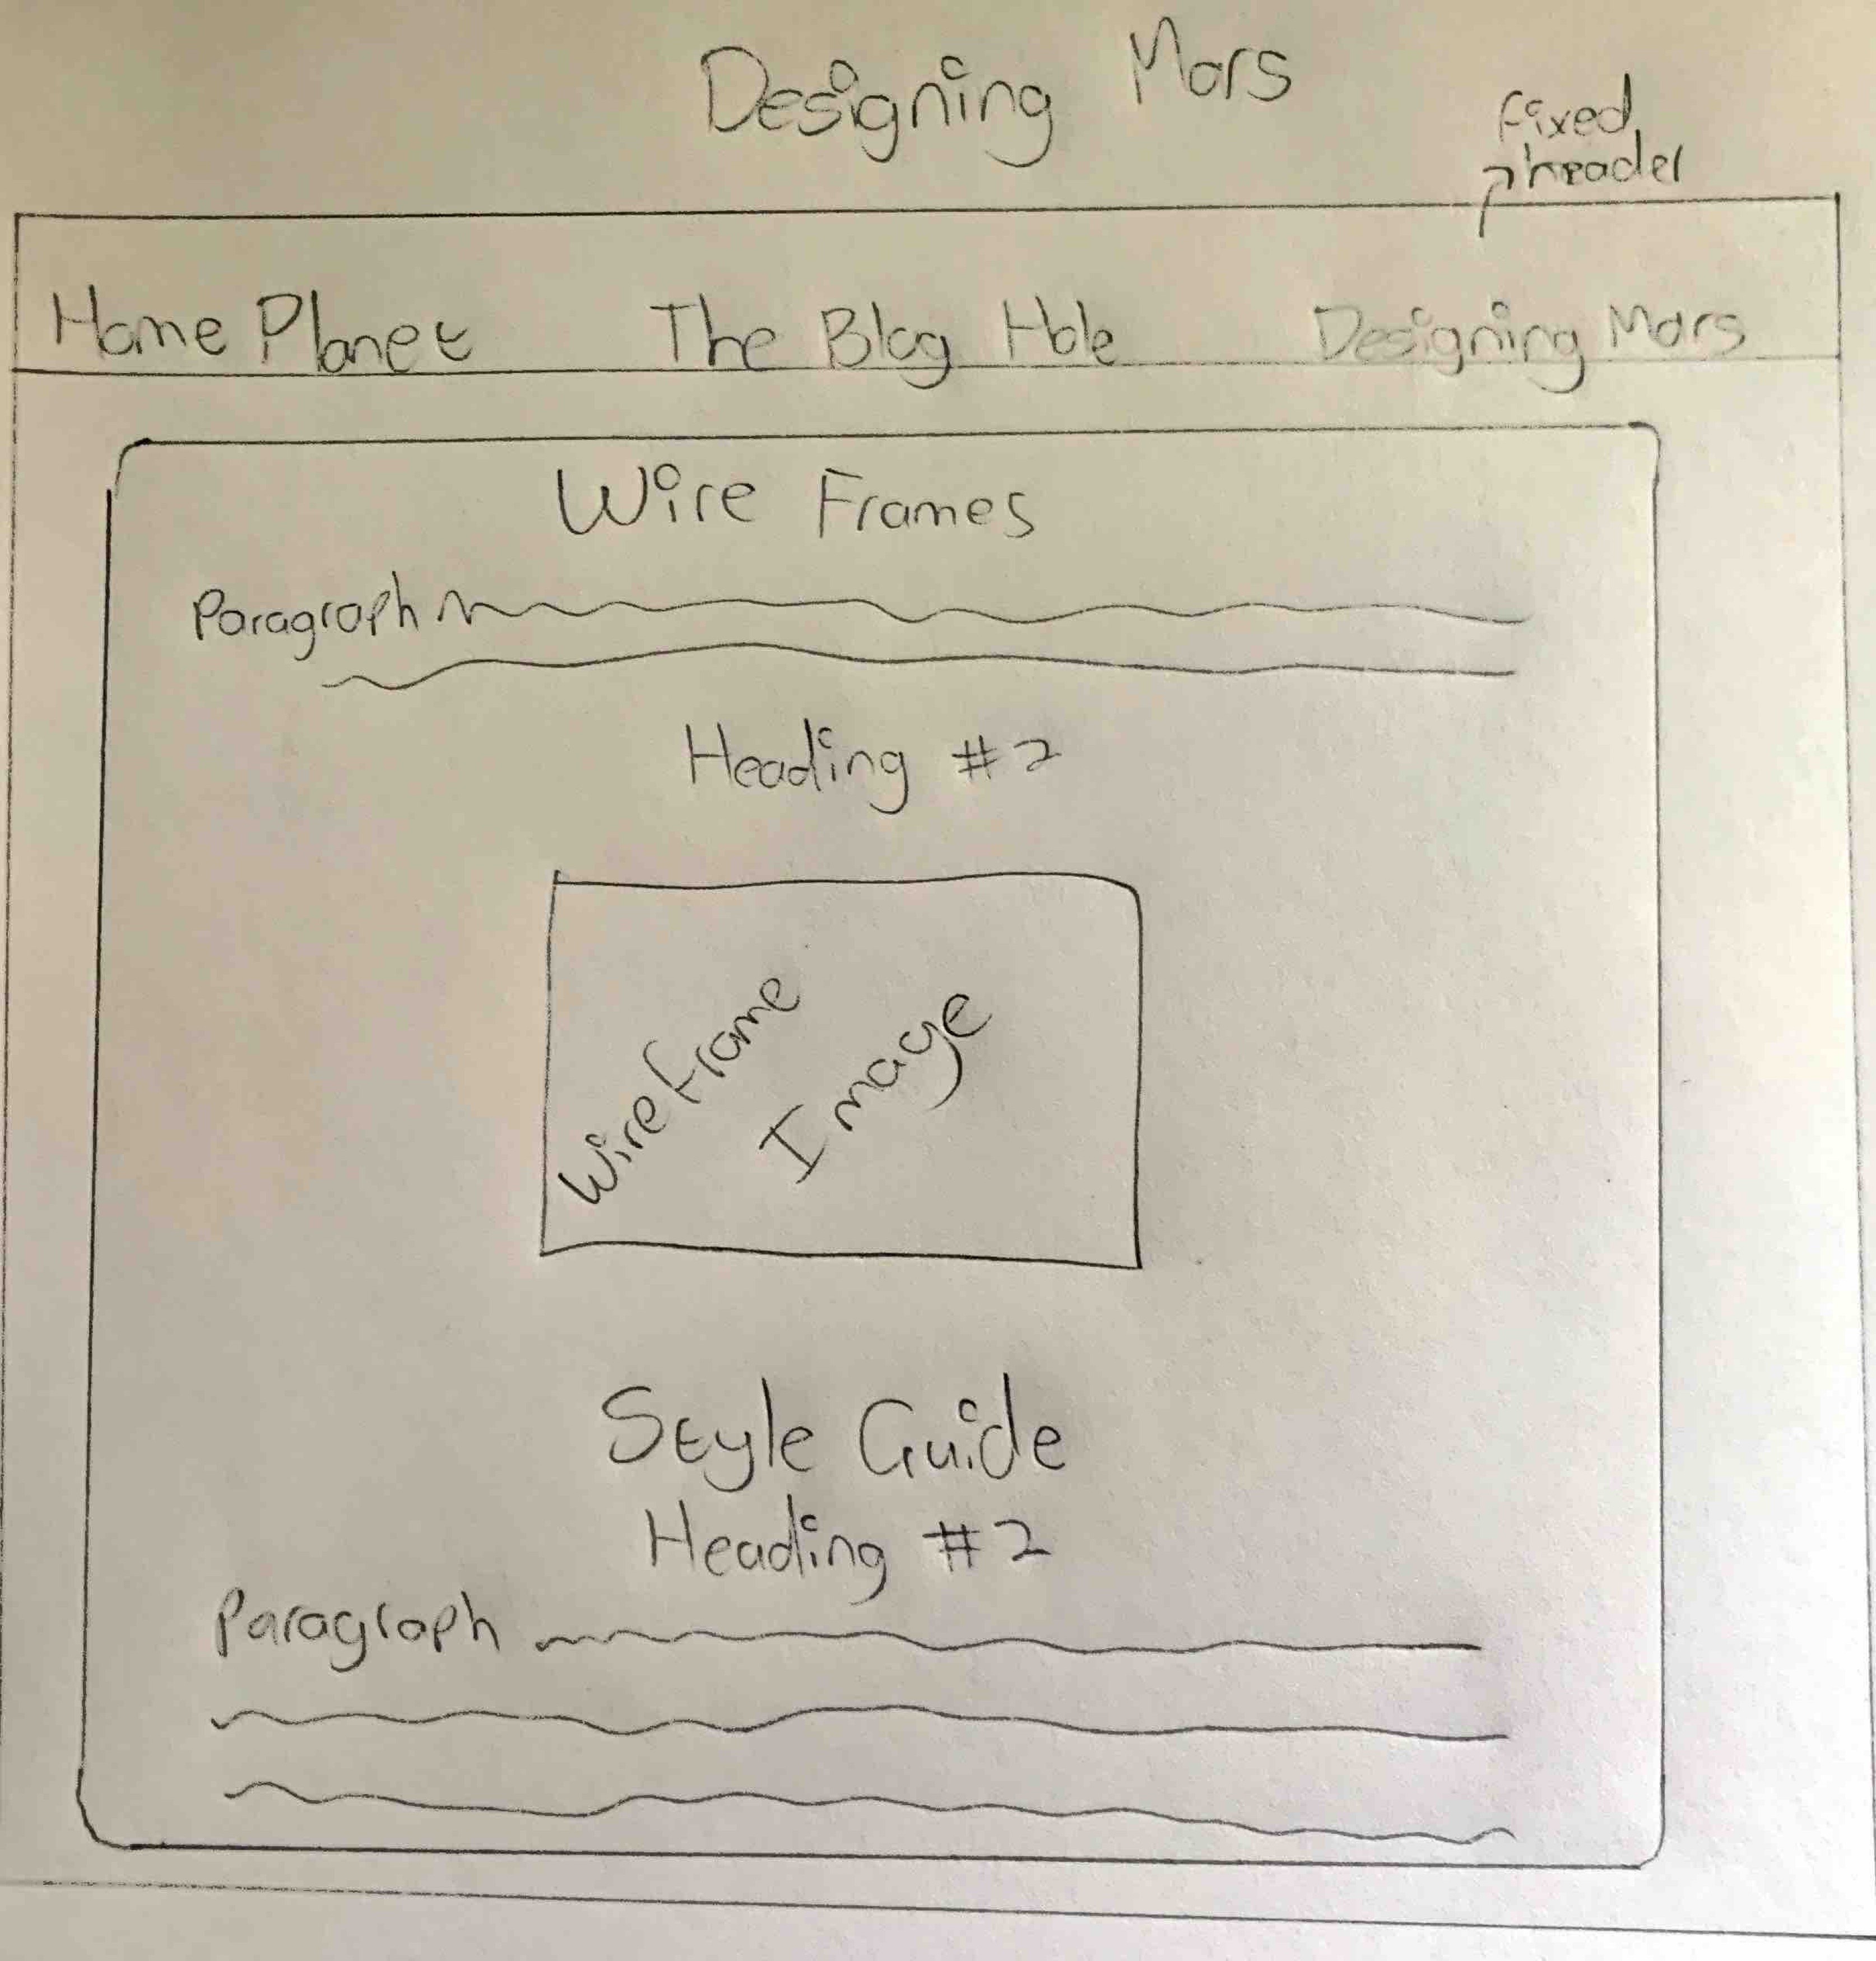 Designing Mars
fixed
header
Home Planet The Blog Hole Designing Mars
Wire Frames
Paragraph
Heading #2
Wireframe
Image
Style Guide
Heading #2
Paragraph